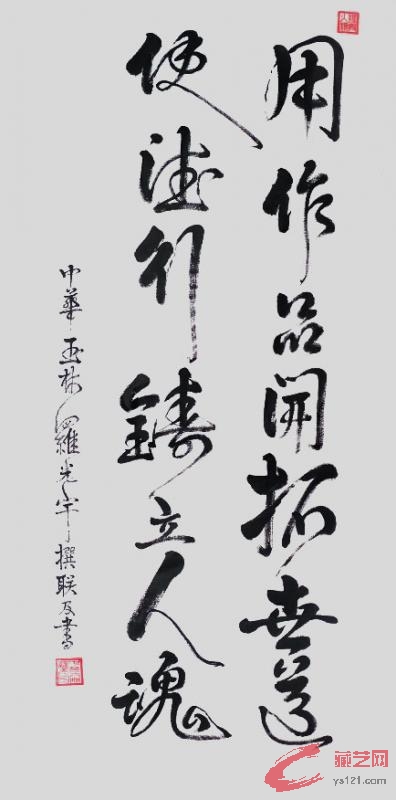 用作品開拓世道
使德行鑄立人魂
中華玉林羅光宇撰联及書
藏艺网
ys121.com